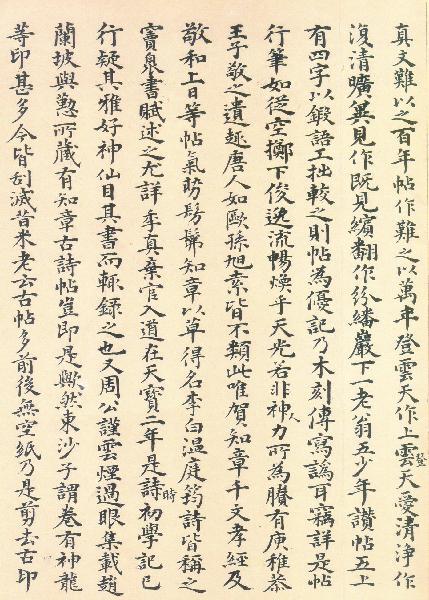 真文難以之百年帖作難之以萬年登雲天作上登雲天愛清淨作
復清曠異見作既見繽翻作紛繙巖下一老翁五少年讚帖五上
有四字以鍛語工拙較之則帖為優記乃木刻傳寫譌耳竊詳是帖
行筆如從空擲下俊逸流暢煥乎天光若非神人力所為賸有庾稚恭
王子敬之遺趣唐人如歐孫旭素皆不類此唯賀知章千文孝經及
敬和上日等帖氣勢髣髴知章以草得名李白温庭筠詩皆稱之
竇泉書賦述之尤詳季真棄官入道在天寶二年是詩時初學記已
行疑其雅好神仙目其書而輒錄之也又周公謹雲煙過眼集載趙
蘭坡與懃所藏有知章古詩帖豈即是歟然東沙子謂卷有神龍
等印甚多今皆刮滅昔米老云古帖多前後無空紙乃是剪去古印